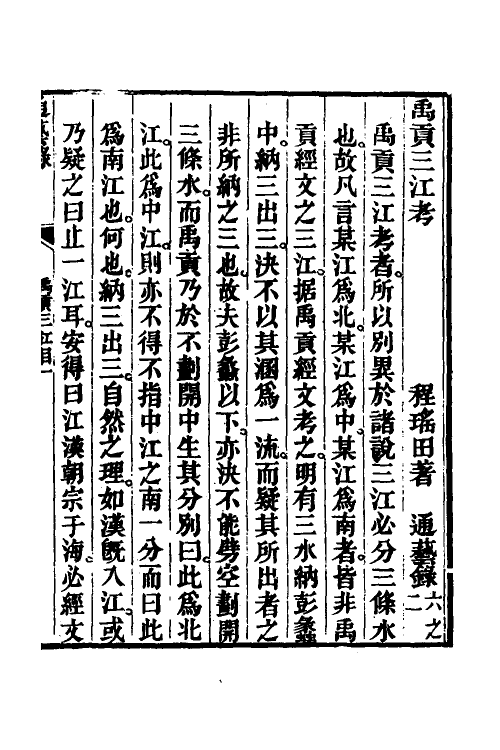 禹貢三江考　程瑤田著　通藝錄六之二
禹貢三江考者。所以別異於諸說三江必分三條水
也。故凡言某江爲北。某江爲中。某江爲南者。皆非禹
貢經文之三江。据禹貢經文考之。明有三水納彭蠡
中。納三出三。決不以其涵爲一流。而疑其所出者之
非所納之三也。故夫彭蠡以下。亦決不能劈空劃開
三條水。而禹貢乃於不劃開中生其分別曰。此爲北
江。此爲中江。則亦不得不指中江之南一分而曰此
爲南江也。何也。納三出三。自然之理。如漢旣入江。或
乃疑之曰止一江耳。安得曰江漢朝宗于海。必經文
禹貢三江目一